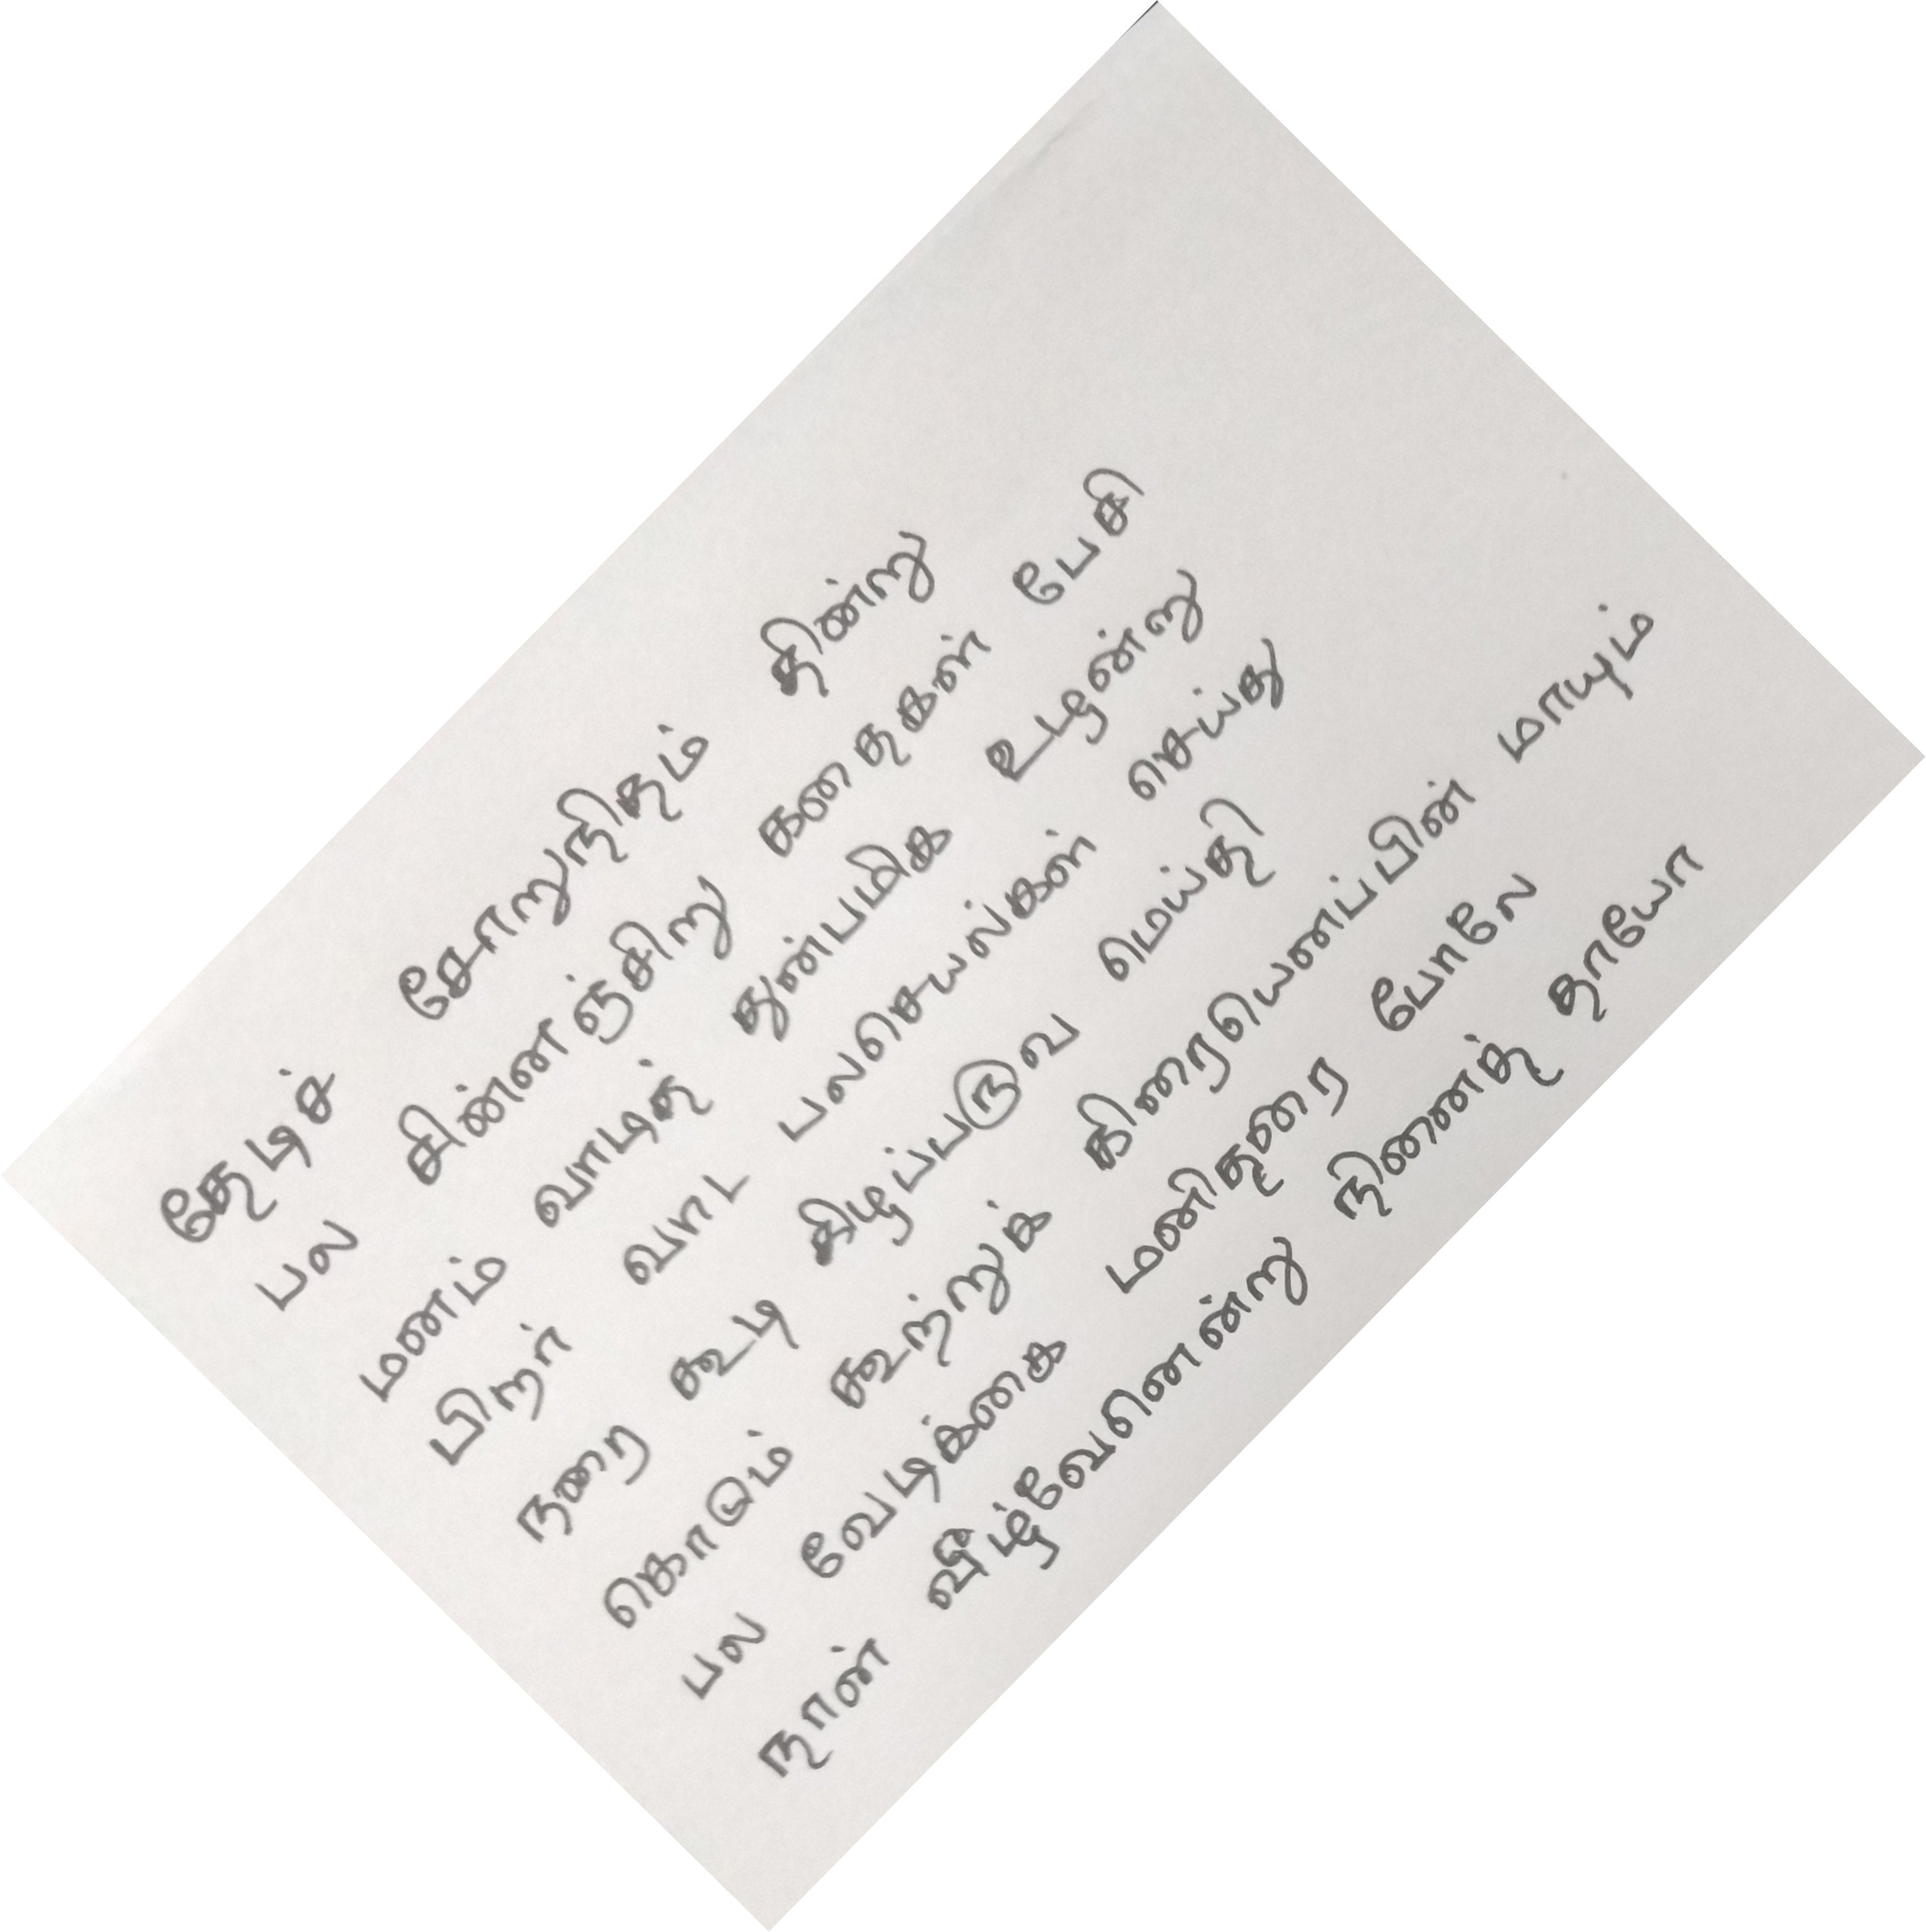 தேடிச் சோறுநிதம் தின்று
பல சின்னஞ்சிறு கதைகள் பேசி
மனம் வாடித் துன்பமிக உழன்று
பிறர் வாட பலசெயல்கள் செய்து
நரை கூடி கிழப்பருவ மெய்தி
கொடும் கூற்றுக் கிரையெனப்பின் மாயும்
பல வேடிக்கை மனிதரை போலே
நான் வீழ்வேனென்று நினைத் தாயோ